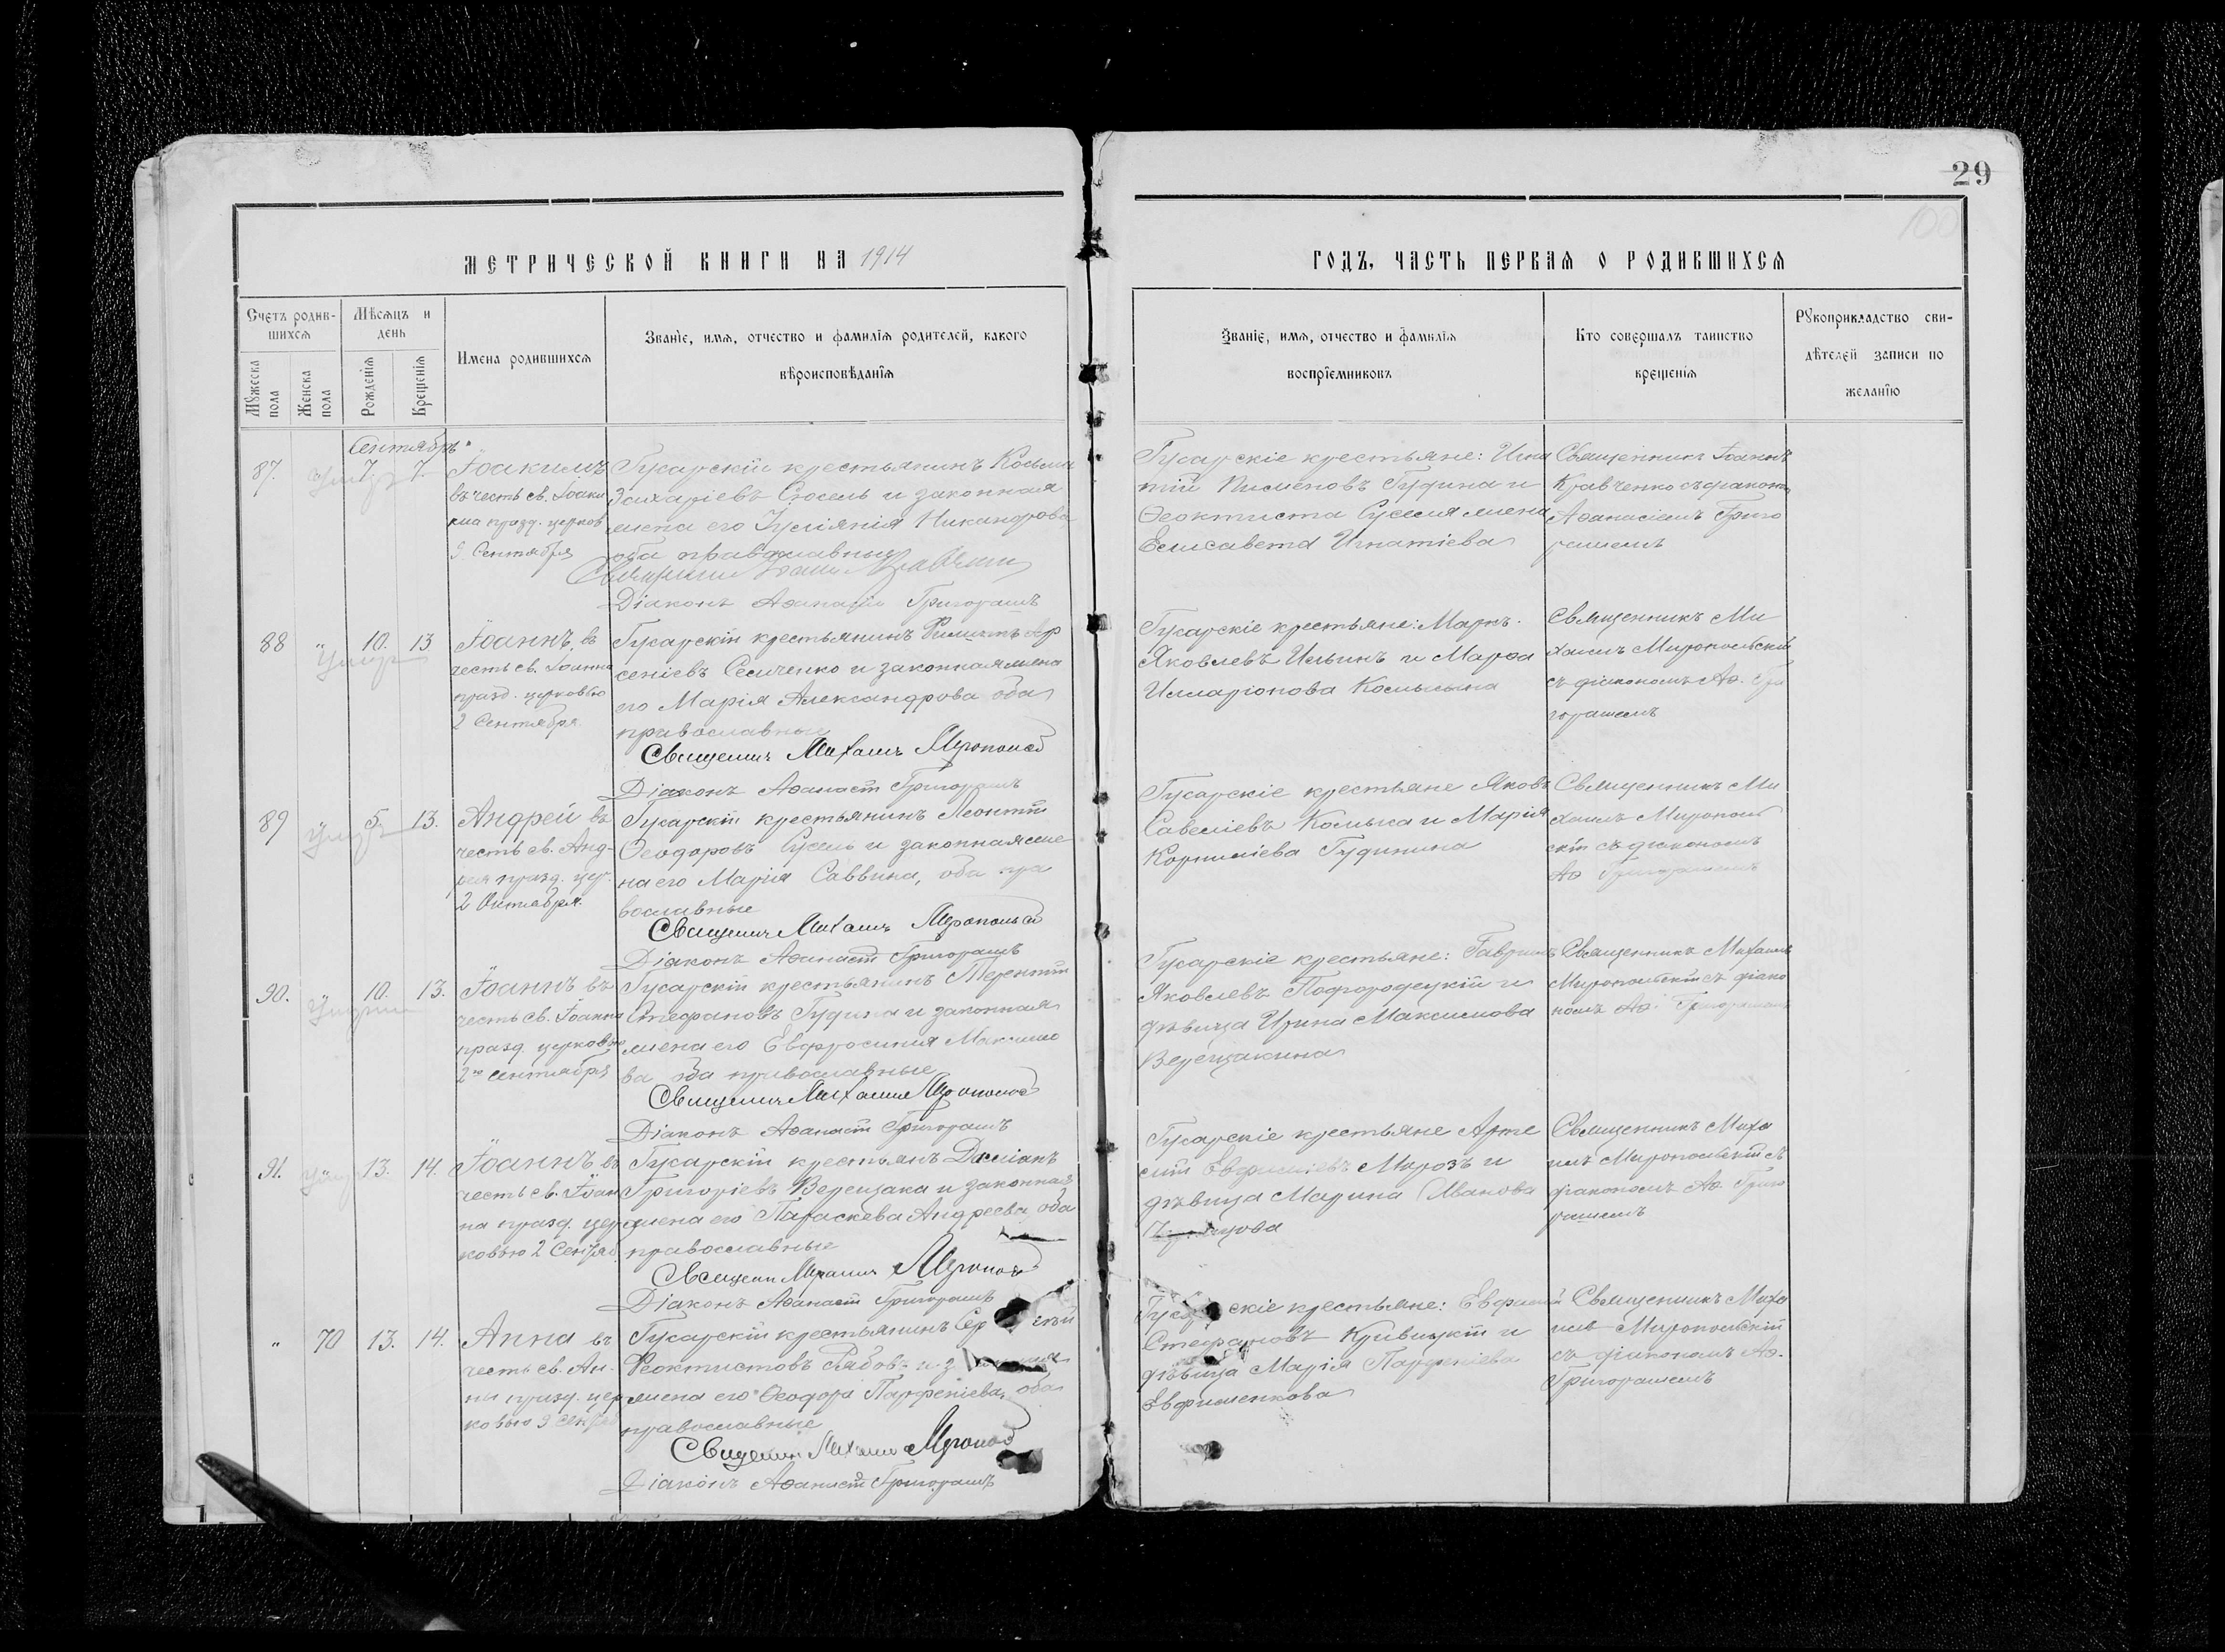 29
100
МЕТРИЧЕСКОЙ КНИГИ НА 1914
ГОДЪ, ЧАСТЬ ПЕРВАЯ О РОДИВШИХСЯ
Счетъ родив-
шихся
Мужеска
пола
Женска
пола
Мѣсяцъ и
день
Рожденія
Крещенія
Имена родившихся
Званіе, имя, отчество и фамилія родителей, какого
вѣроисповѣданія
Званіе, имя, отчество и фамилія
воспріемниковъ
Кто совершалъ таинство
крещенія
Рукоприкладство сви-
дѣтелей записи по
желанію
Сентябрь
87. 7. 7.
Іоакимъ
въ честь св. Іоаки
ма празд. церков
9 Сентября
Гусарскій крестьянинъ Косьма
Захаріевъ и законная
жена его Никандрова
оба православные
Священникъ Іоаннъ Кравченко
Діаконъ Аѳанасій Григорашъ
Гусарскіе крестьяне: Игна
тій Пименовъ Гудина и
Ѳеоктиста жена
Елисавета Игнатіева
Священникъ Іоаннъ
Кравченко съ діакономъ
Аѳанасіемъ Григо
рашемъ
88 " 10. 13
Іоаннъ, въ
честь св. Іоанна
празд. церковью
2 Сентября.
Гусарскій крестьянинъ Филиппъ Ар
сеніевъ Семченко и законная жена
его Марія Александрова оба
православные
Священникъ Михаилъ Миропольскій
Діаконъ Аѳанасій Григорашъ
Гусарскіе крестьяне: Маркъ
Яковлевъ Ильинъ и Марѳа
Илларіонова
Священникъ Ми
хаилъ Миропольскій
съ діакономъ Аѳ. Гри
горашемъ
89 " 5. 13.
Андрей въ
честь св. Анд-
рея празд. цер.
2 Октября.
Гусарскій крестьянинъ Леонтій
Ѳеодоровъ и законная же
на его Марія Саввина, оба пра
вославные
Священникъ Михаилъ Миропольскій
Діаконъ Аѳанасій Григорашъ
Гусарскіе крестьяне Яковъ
Савеліевъ и Марія
Корниліева Гудинина
Священникъ Ми
хаилъ Мирополь
скій съ діакономъ
Аѳ Григорашемъ
90. " 10. 13.
Іоаннъ въ
честь св. Іоанна
празд. церковью
2го Сентября
Гусарскій крестьянинъ Терентій
Стефановъ Гудина и законная
жена его Евфросинія Максимо
ва оба православные
Священникъ Михаилъ Миропольскій
Діаконъ Аѳанасій Григорашъ
Гусарскіе крестьяне: Гавріилъ
Яковлевъ Погородецкій и
дѣвица Ирина Максимова
Верещакина
Священникъ Михаилъ
Миропольскій съ діако
номъ Аѳ. Григорашемъ
91. 13. 14.
Іоаннъ, въ
честь св. Іоан
на празд. цер
ковью 2 Сентяб
Гусарскій крестьянъ Даміанъ
Григоріевъ Верещака и законная
жена его Параскева Андреева оба
православные
Священ Михаилъ Миропол
Діаконъ Аѳанасій Григорашъ
Гусарскіе крестьяне Арте
мій Морозъ и
дѣвица Марина Иванова
Священникъ Миха
илъ Миропольскій съ
діакономъ Аѳ. Григо
рашемъ
" 70 13. 14.
Анна въ
честь св. Ан-
ны празд. цер
ковью 9 Сентяб
Гусарскій крестьянинъ Сер гій
Ѳеоктистовъ Рябовъ и законная
жена его Ѳеодора Парфеніева, оба
православные
Священникъ Михаилъ Миропол
Діаконъ Аѳанасій Григорашъ
Гусарскіе крестьяне: Евфимій
Стефановъ Кривицкій и
дѣвица Марія Парфеніева
Евфименкова
Священникъ Миха
илъ Миропольскій
съ діакономъ Аѳ.
Григорашемъ